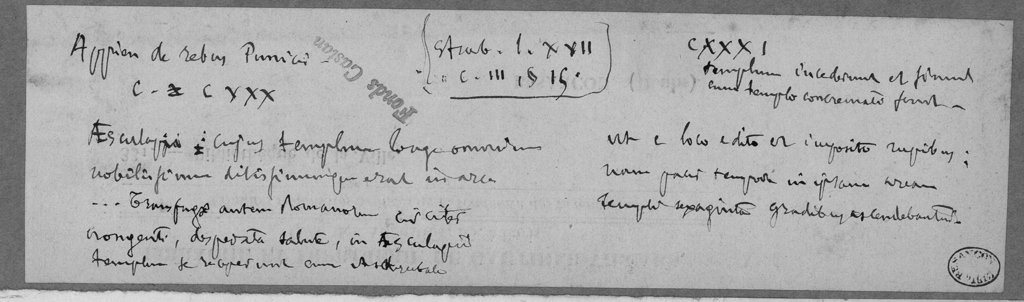 Appien de rebus Punicis
C. CXXX
Strab. l. XVII
c. III § 15.
Fonds Castan
Æsculapii cujus templum longe omnium
nobilissimum ditissimumque erat in arce
... Transfugæ autem Romanorum circiter
nongenti, desperata salute, in Æsculapii
templum se receperunt cum Asdrubale
CXXXI
templum incederunt et simul
cum templo concremati sunt
ut e loco edito et imposito rupibus ;
nam pacis tempore in ipsam arcem
templi sexaginta gradibus ascendebantur.